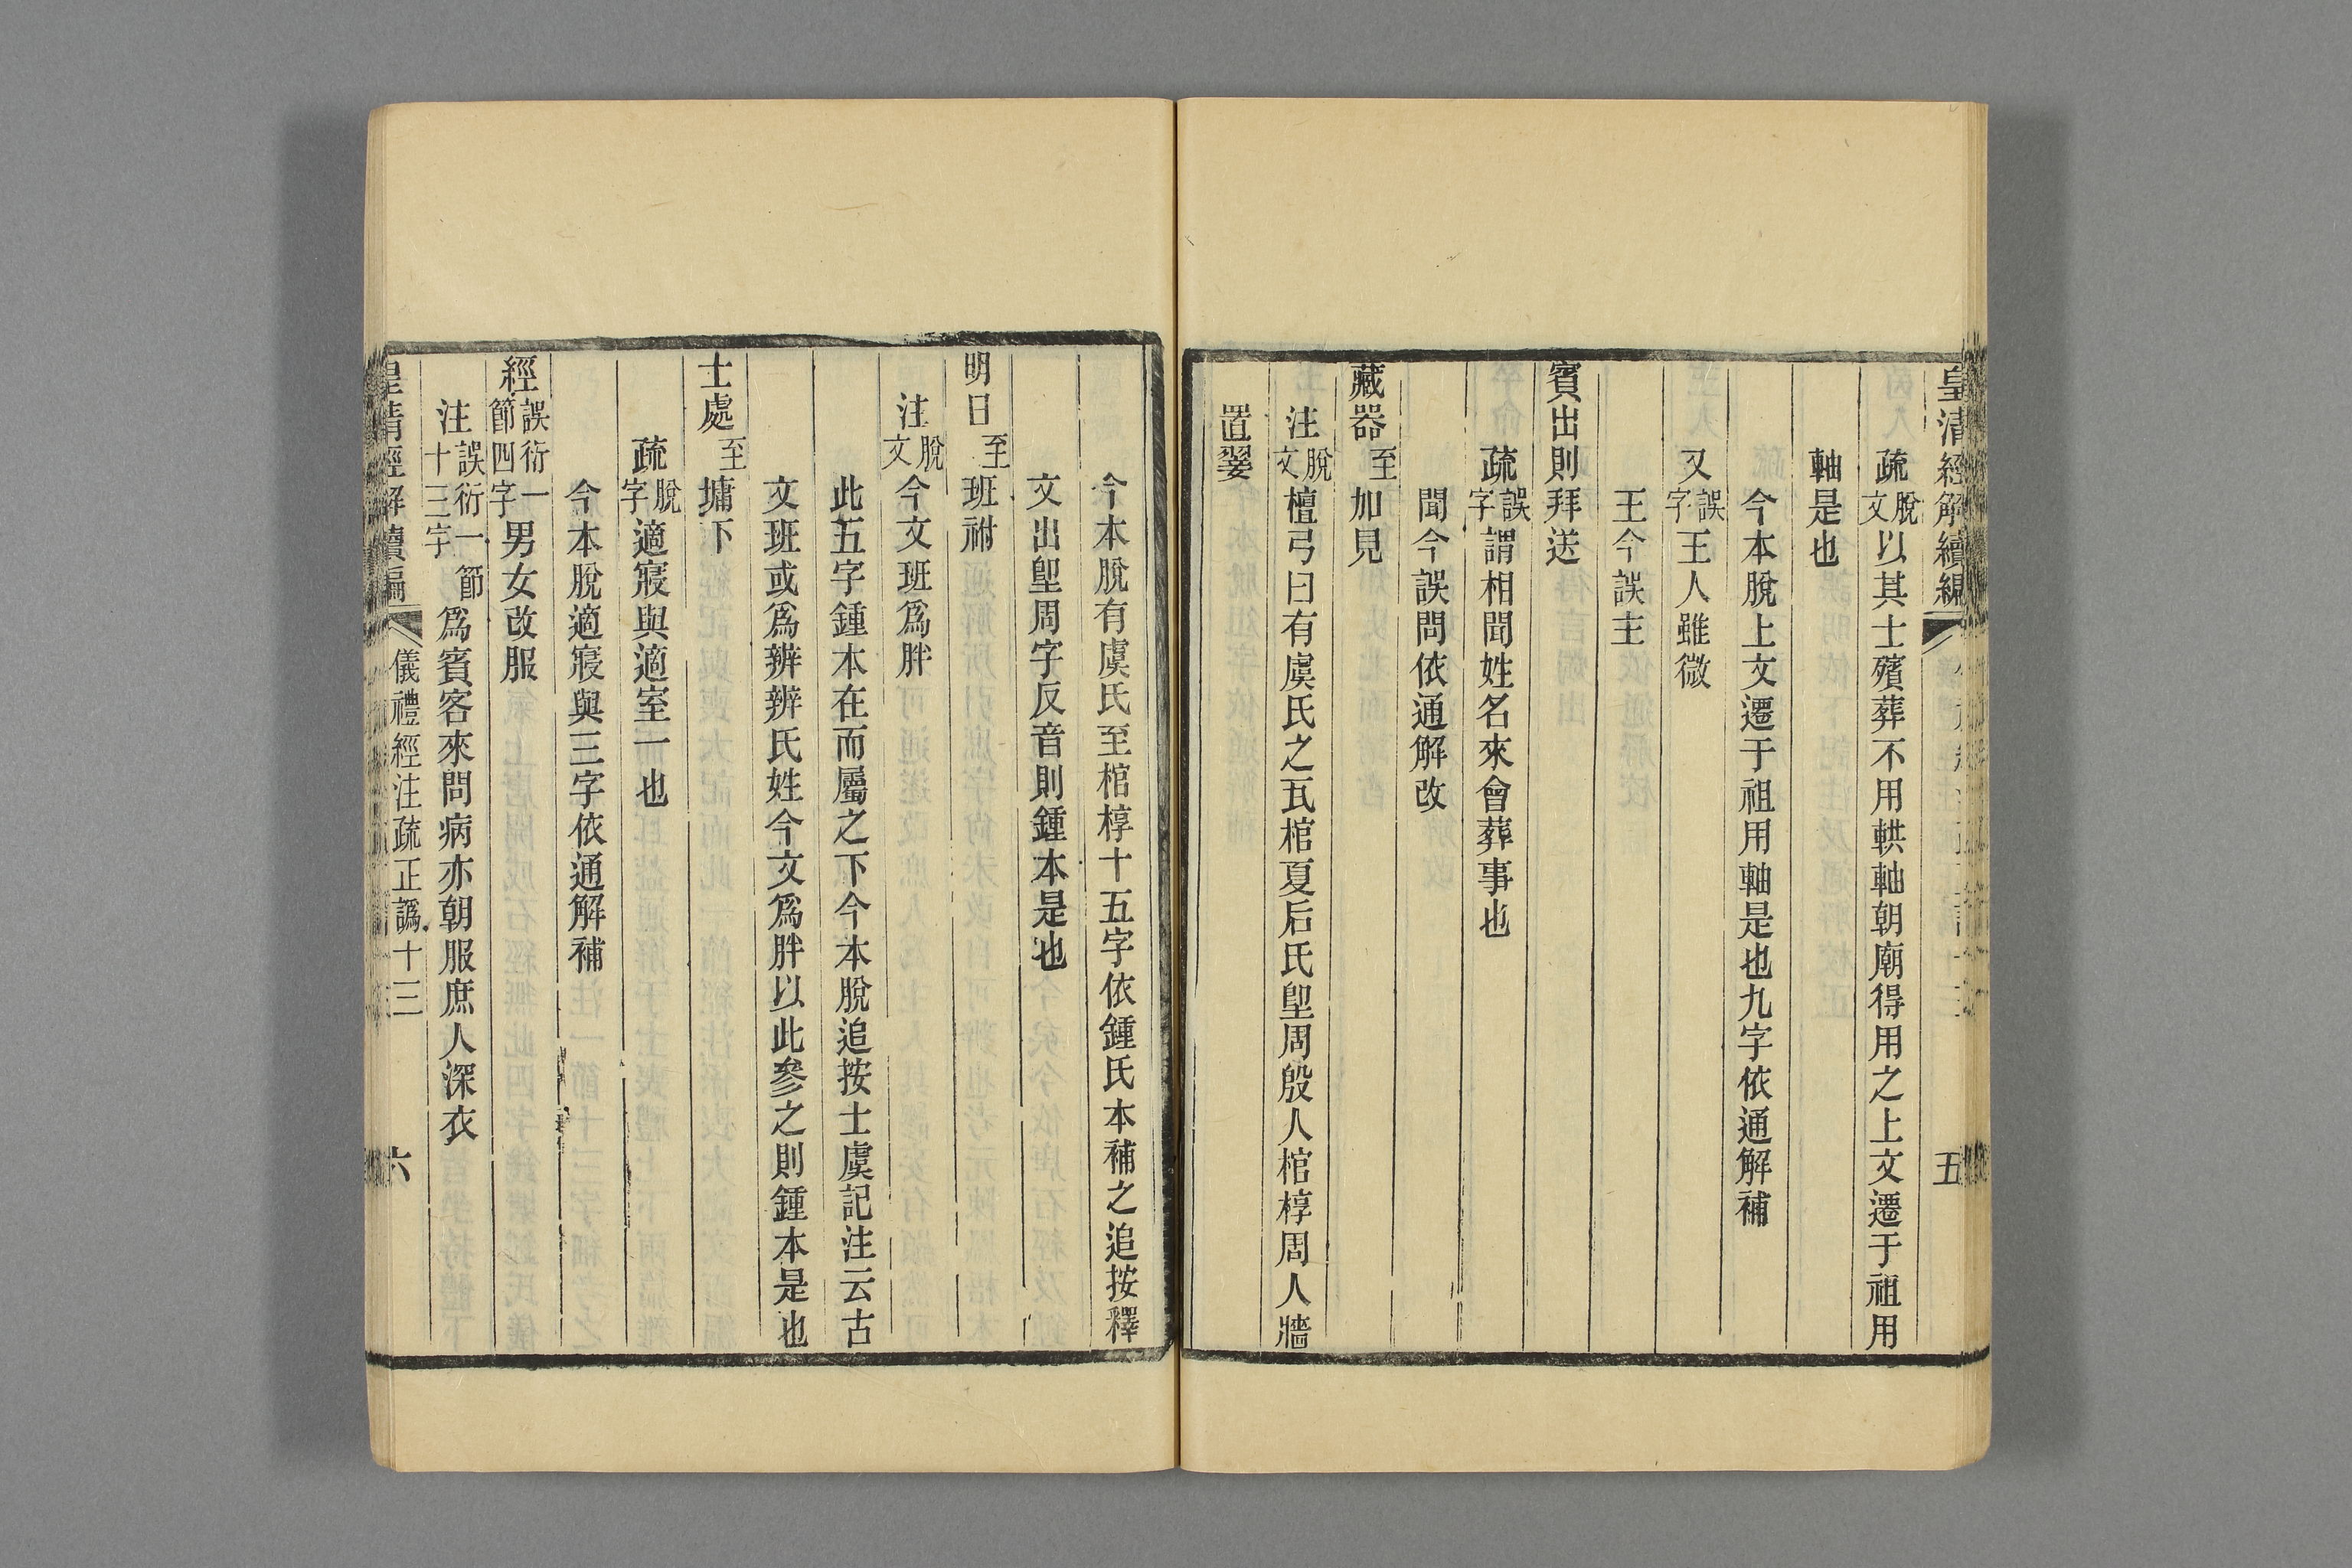 皇清經解續編
五
疏脫文以其士殯葬不用輁軸朝廟得用之上文遷于祖用
軸是也
今本脫上文遷于祖用軸是也九字依通解補
又誤字王人雖微
王今誤主
賓出則拜送
疏誤字謂相聞姓名來會葬事也
聞今誤問依通解改
藏器至加見
注脫文檀弓曰有虞氏之瓦棺夏后氏堲周殷人棺椁周人牆
置翣
今本脫有虞氏至棺椁十五字依鍾氏本補之追按釋
文出堲周字反音則鍾本是也
明日至班祔
注脫文今文班爲胖
此五字鍾本在而屬之下今本脫追按士虞記注云古
文班或爲辨辨氏姓今文爲胖以此參之則鍾本是也
士處至墉下
疏脫字適寢與適室一也
今本脫適寢與三字依通解補
經誤衍一節四字男女改服
注誤衍一節十三字爲賓客來問病亦朝服庶人深衣
皇清經解續編
儀禮經注疏正譌十三
六